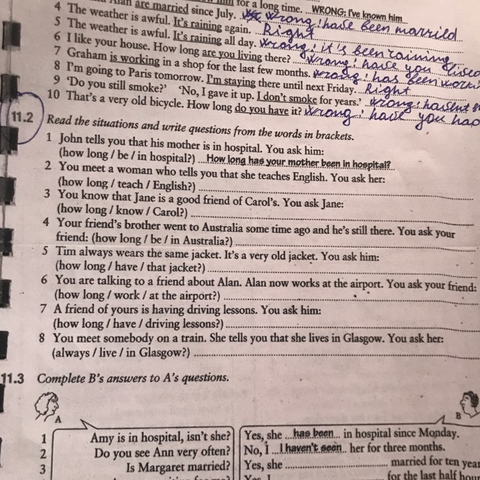 for a long time. ..WRONG: I've known him
Alan are married since July. Wrong! have been married
4 The weather is awful. It's raining again. Right
5 The weather is awful. It's raining all day. wrong! it's been raining
6 I like your house. How long are you living there? wrong! have you
7 Graham is working in a shop for the last few months. wrong! has been
8 I'm going to Paris tomorrow. I'm staying there until next Friday. Right
9 'Do you still smoke?' 'No, I gave it up. I don't smoke for years.' wrong! haven't
10 That's a very old bicycle. How long do you have it? wrong! have you
11.2 Read the situations and write questions from the words in brackets.
1 John tells you that his mother is in hospital. You ask him:
(how long / be / in hospital?) ...How long has your mother been in hospital?
2 You meet a woman who tells you that she teaches English. You ask her:
(how long / teach / English?)
3 You know that Jane is a good friend of Carol's. You ask Jane:
(how long / know / Carol?)
4 Your friend's brother went to Australia some time ago and he's still there. You ask your
friend: (how long / be / in Australia?)
5 Tim always wears the same jacket. It's a very old jacket. You ask him:
(how long / have / that jacket?)
6 You are talking to a friend about Alan. Alan now works at the airport. You ask your friend:
(how long / work / at the airport?)
7 A friend of yours is having driving lessons. You ask him:
(how long / have / driving lessons?)
8 You meet somebody on a train. She tells you that she lives in Glasgow. You ask her:
(always / live / in Glasgow?)
11.3 Complete B's answers to A's questions.
A
B
1 Amy is in hospital, isn't she? Yes, she ...has been... in hospital since Monday.
2 Do you see Ann very often? No, I ...haven't seen... her for three months.
3 Is Margaret married? Yes, she ........ married for ten
for the last half hour